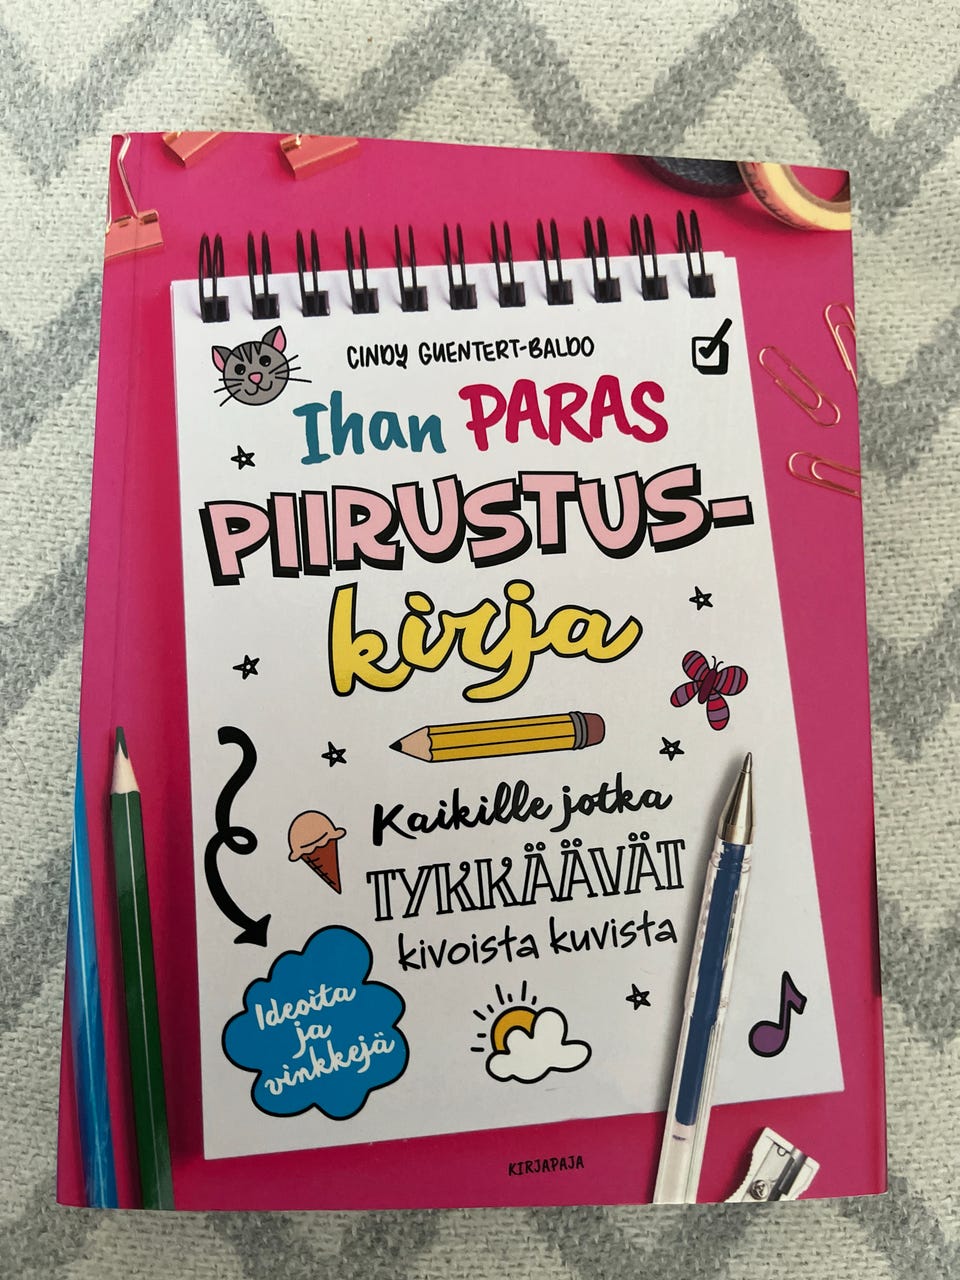 CINDY GUENTERT-BALDO
Ihan PARAS
PIIRUSTUS-
kirja
Kaikille jotka
TYKKÄÄVÄT
kivoista kuvista
Ideoita
ja
vinkkejä
KIRJAPAJA